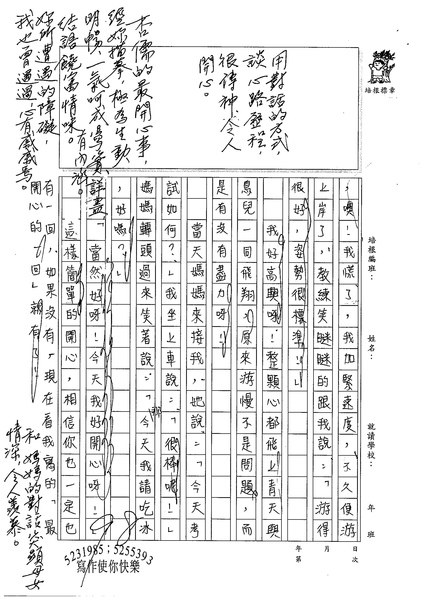 ，噢！我慌了，我加緊速度，不久便游
上岸了，教練笑瞇瞇的跟我說：「游得
很好，姿勢很標準！」
我好高興呀！整顆心都飛上青天與
鳥兒一同飛翔，原來游慢不是問題，而
是有沒有盡力呀！
當天媽媽來接我，她說：「今天考
試如何？」我坐上車說：「很棒喔！」
媽媽轉頭過來笑著說：「今天我請吃冰
，好嗎？」
「當然好呀！今天我好開心呀！」
這樣簡單的開心，相信你也一定也
有一回，如果沒有，現在看我寫的「最
開心的一回」就有了！
用對話的方式，
談心路歷程，
很傳神，令人
開心。
杏儒的最開心事，
經妳描摹，極為生動
明暢，一氣呵成，
結語饒富情味。
妳所遭遇的障礙，
我也曾遇過，心有戚戚焉。
和媽媽的對話突顯母女
情深，令人羨慕。
98
培程標章
培程編班：
姓名：
就讀學校：
年　班
年　月　日
第　次
5231985；5255393
寫作使你快樂